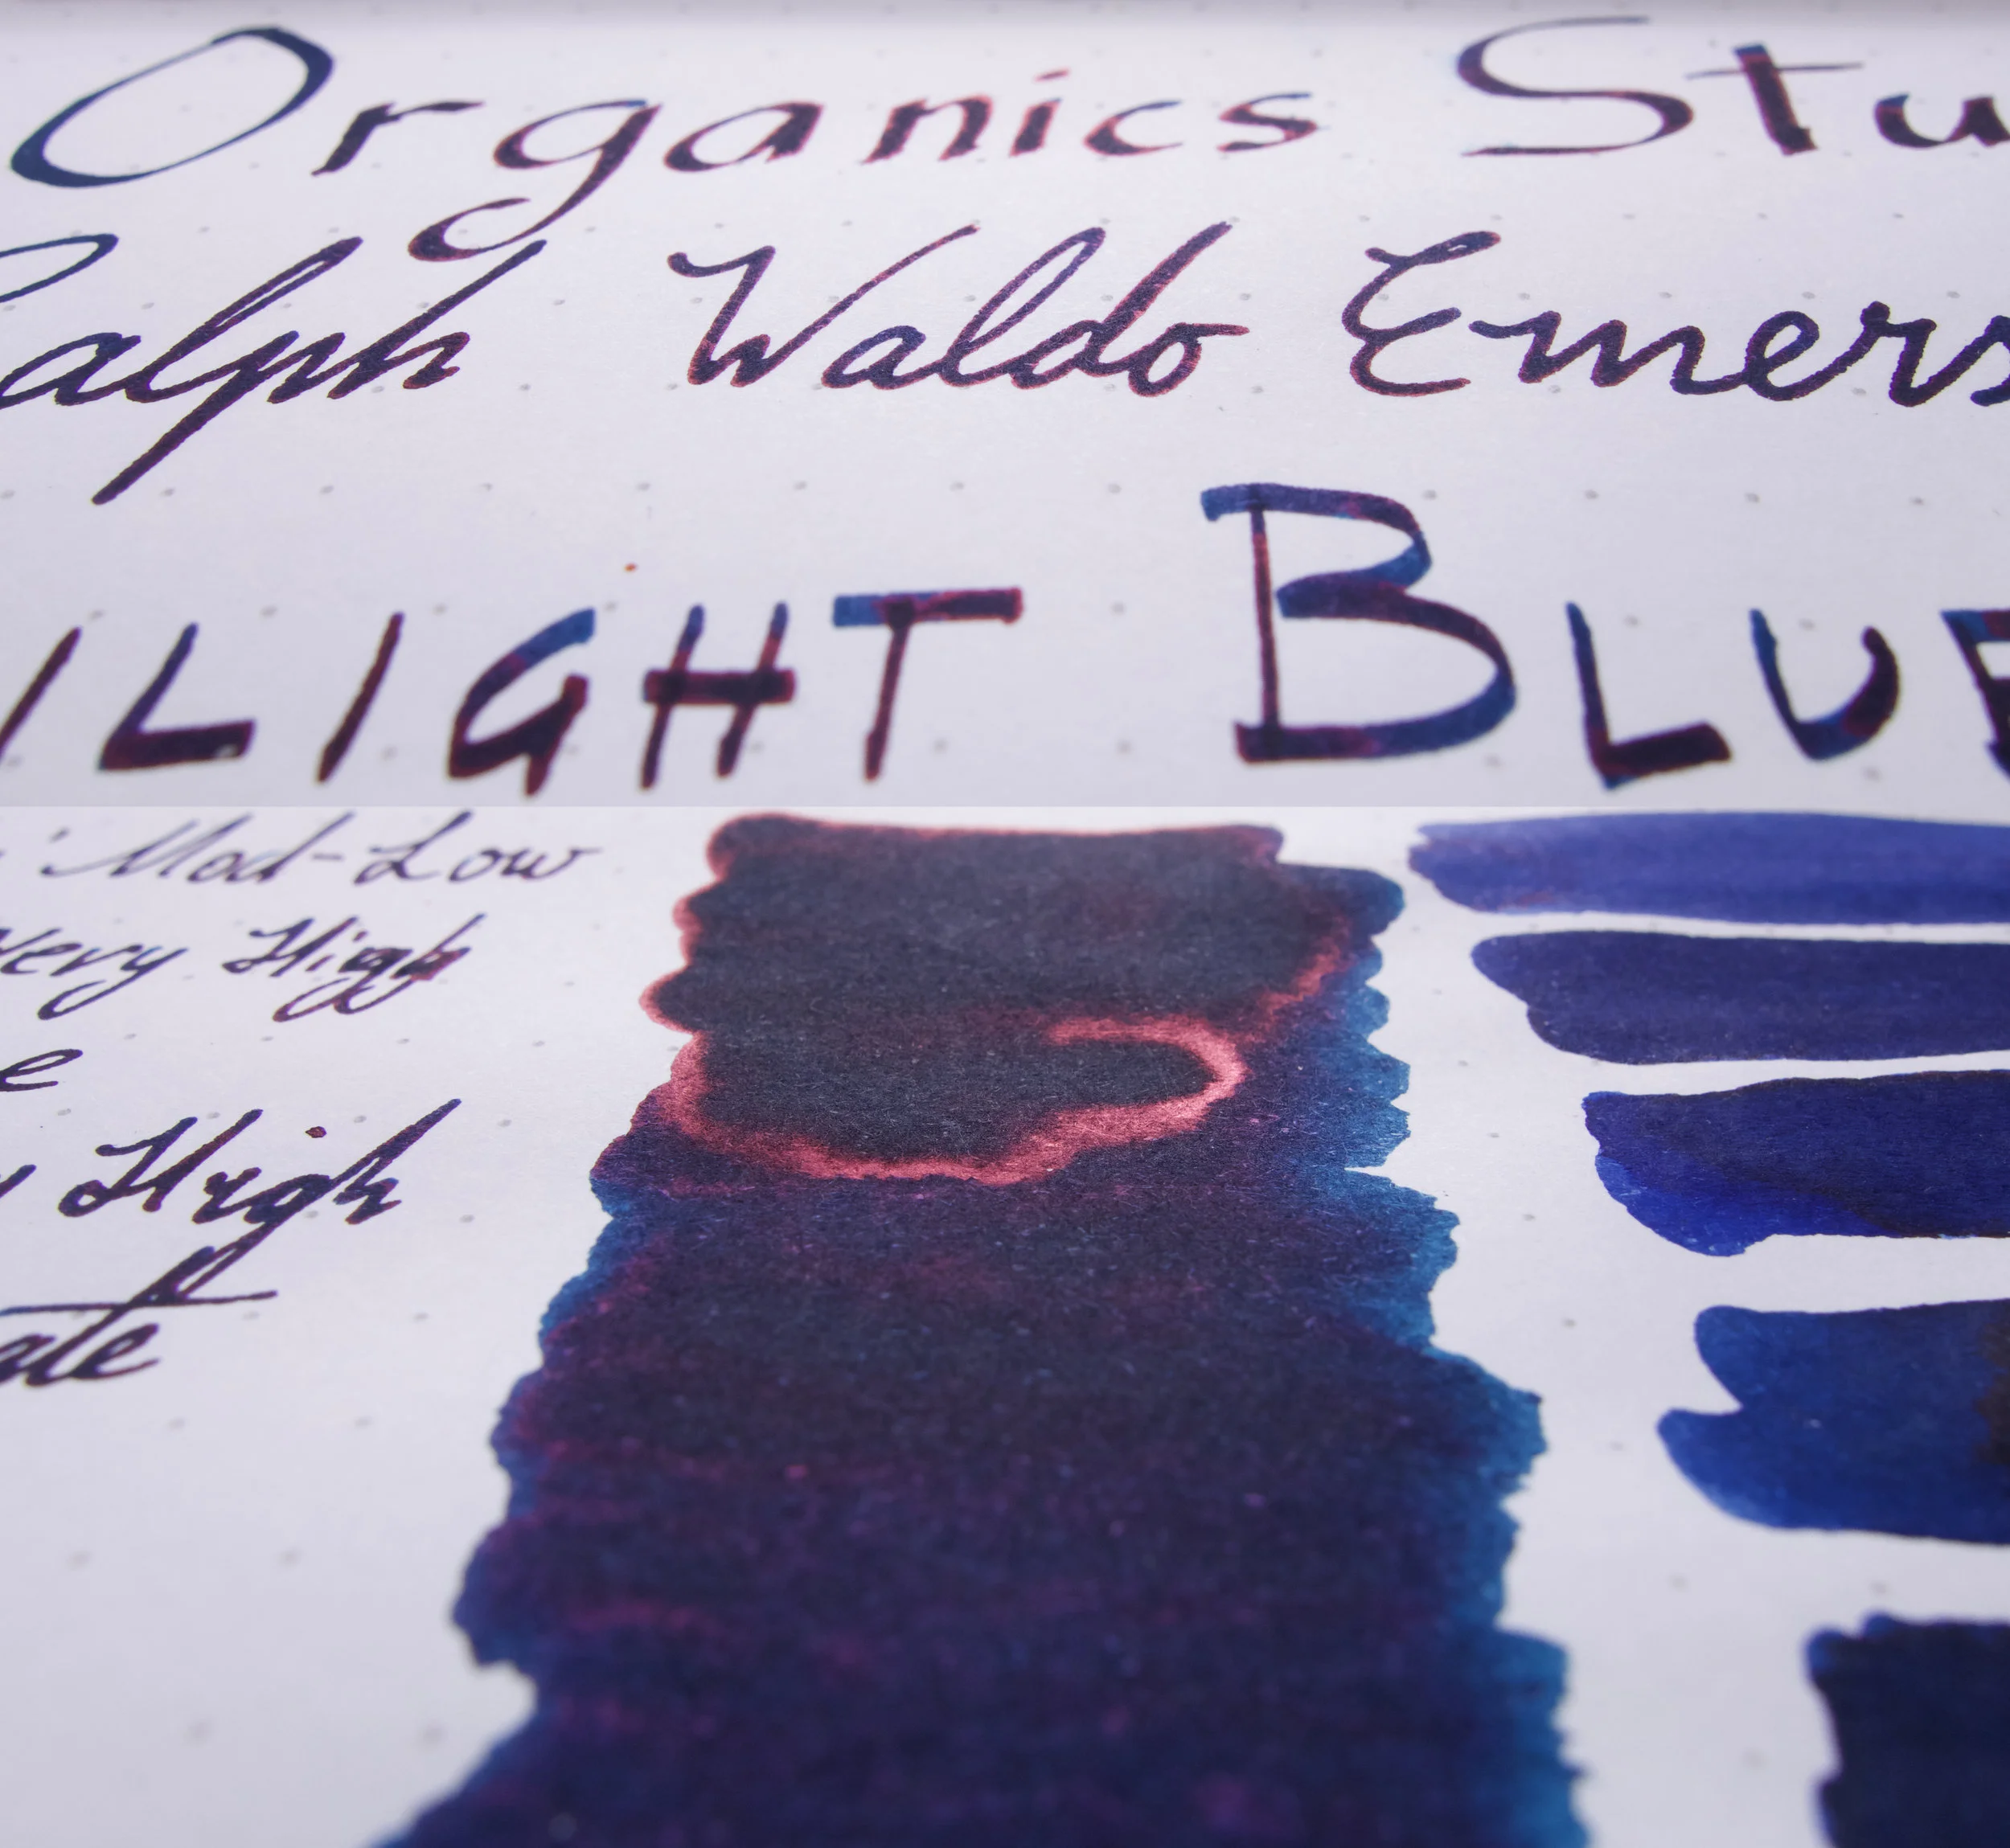 Organics Stu
Ralph Waldo Emers
ILIGHT BLUE
: Mod-Low
Very High
e
y High
ate